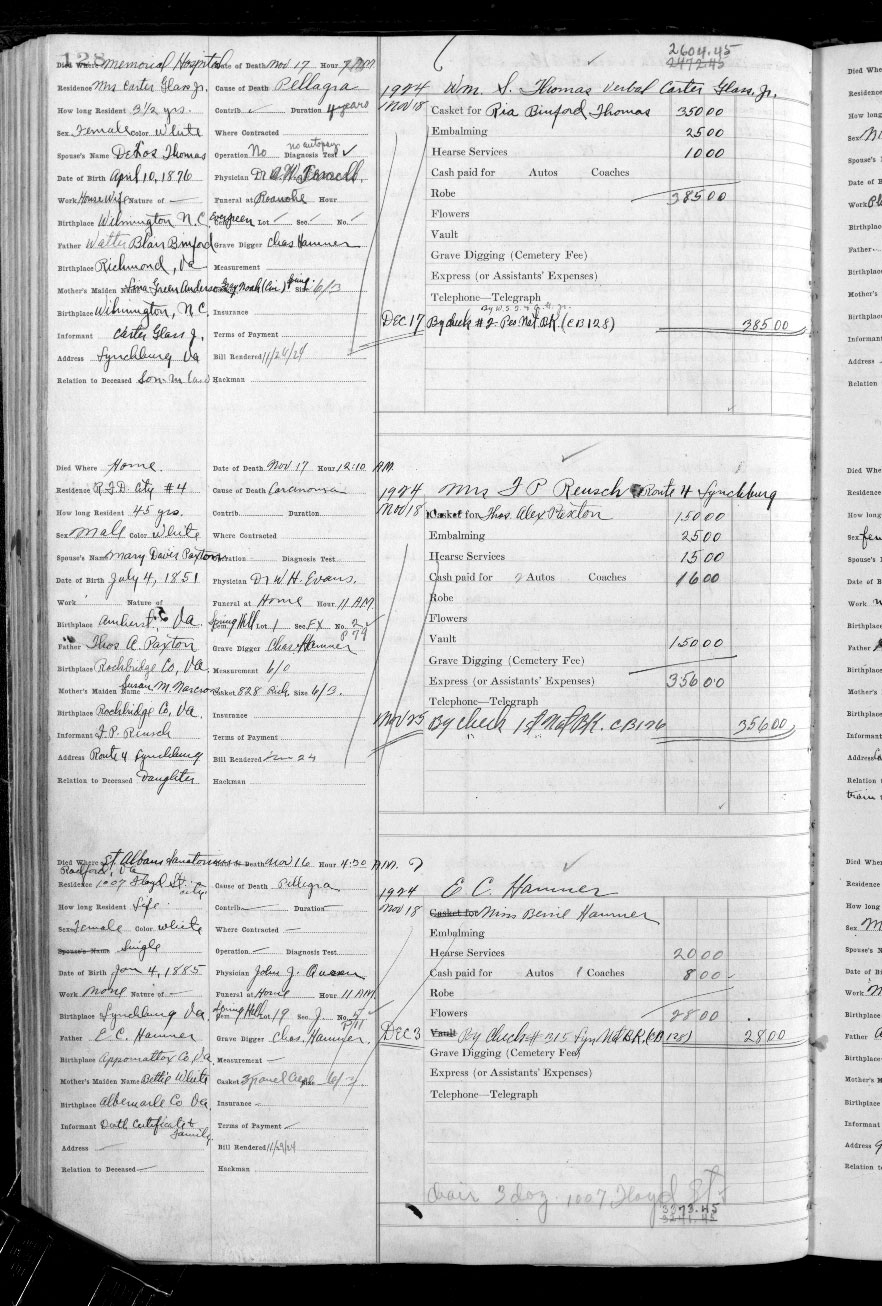 128
2604.45
2472.45
Died Where Memorial Hospital Date of Death Nov 17 Hour 7 PM
Residence Mrs Carter Glass Jr. Cause of Death Pellagra
How long Resident 3 1/2 yrs. Contrib. ✓ Duration 4 years
Sex Female Color White Where Contracted
Spouse's Name Thomas Operation No Diagnosis Test no autopsy ✓
Date of Birth April 10, 1876 Physician Dr
Work House Wife Nature of — Funeral at Roanoke Hour
Birthplace Wilmington N.C. Cem. Evergreen Lot ✓ Sec. ✓ No. ✓
Father Walter Blair Binford Grave Digger Chas Hamner
Birthplace Richmond, Va Measurement
Mother's Maiden Name Green Anderson Size 6/3
Birthplace Wilmington, N.C. Insurance
Informant Carter Glass Jr. Terms of Payment
Address Lynchburg Va Bill Rendered 11/20/24
Relation to Deceased Son-in-law Hackman
1924 Wm. S. Thomas verbal Carter Glass, Jr.
Nov 18 Casket for Ria Binford Thomas 350 00
Embalming 25 00
Hearse Services 10 00
Cash paid for Autos Coaches
Robe 385 00
Flowers
Vault
Grave Digging (Cemetery Fee)
Express (or Assistants' Expenses)
Telephone—Telegraph
DEC 17 By check #2 Peo Nat. BK. (CB 128) 385 00
Died Where Home Date of Death Nov 17 Hour 12:10 A.M.
Residence R.F.D. City #4 Cause of Death Carcinoma
How long Resident 45 yrs. Contrib. Duration
Sex Male Color White Where Contracted
Spouse's Name Mary Davis Paxton Operation Diagnosis Test
Date of Birth July 4, 1851 Physician Dr W.H. Evans.
Work Nature of Funeral at Home Hour 11 A.M.
Birthplace Amherst Co Va. Cem. Spring Hill Lot 1 Sec. EX No. 2
P 79
Father Thos A. Paxton Grave Digger Chas Hamner
Birthplace Rockbridge Co, Va. Measurement 6/0
Mother's Maiden Name Susan M. Casket 828 Rich. Size 6/3.
Birthplace Rockbridge Co, Va. Insurance
Informant F.P. Reusch Terms of Payment
Address Route 4 Lynchburg Bill Rendered 24
Relation to Deceased Daughter Hackman
1924 Mrs F P Reusch Route 4 Lynchburg
Nov 18 Casket for Thos. Alex Paxton 150 00
Embalming 25 00
Hearse Services 15 00
Cash paid for 2 Autos Coaches 16 00
Robe
Flowers
Vault 150 00
Grave Digging (Cemetery Fee)
Express (or Assistants' Expenses) 356 00
Telephone—Telegraph
Nov 25 By check 1st Nat BK. CB 126 356 00
Died Where St. Albans Sanatorium Date of Death Nov 16 Hour 4:30 A.M. ?
Radford, Va
Residence 1007 Floyd St. City Cause of Death Pellegra
How long Resident Life Contrib. — Duration —
Sex Female Color White Where Contracted —
Spouse's Name Single Operation — Diagnosis Test
Date of Birth Jan 4, 1885 Physician John J.
Work None Nature of — Funeral at Home Hour 11 AM
Birthplace Lynchburg Va. Cem. Spring Hill Lot 19 Sec. J. No. 5
P 111
Father E.C. Hamner Grave Digger Chas. Hamner.
Birthplace Appomattox Co Va. Measurement —
Mother's Maiden Name Bettie White Casket 3 panel Size 6/3
Birthplace Albemarle Co Va. Insurance —
Informant Death Certificate & Family Terms of Payment —
Address — Bill Rendered 11/29/24
Relation to Deceased — Hackman
1924 E. C. Hamner
Nov 18 Casket for Miss Bernie Hamner
Embalming
Hearse Services 20 00
Cash paid for Autos 1 Coaches 8 00
Robe
Flowers 28 00
DEC 3 Vault By Check # 315 Lyn Nat BK. (CB 128) 28 00
Grave Digging (Cemetery Fee)
Express (or Assistants' Expenses)
Telephone—Telegraph
chair 3 doz. 1007 Floyd St.
3373.45